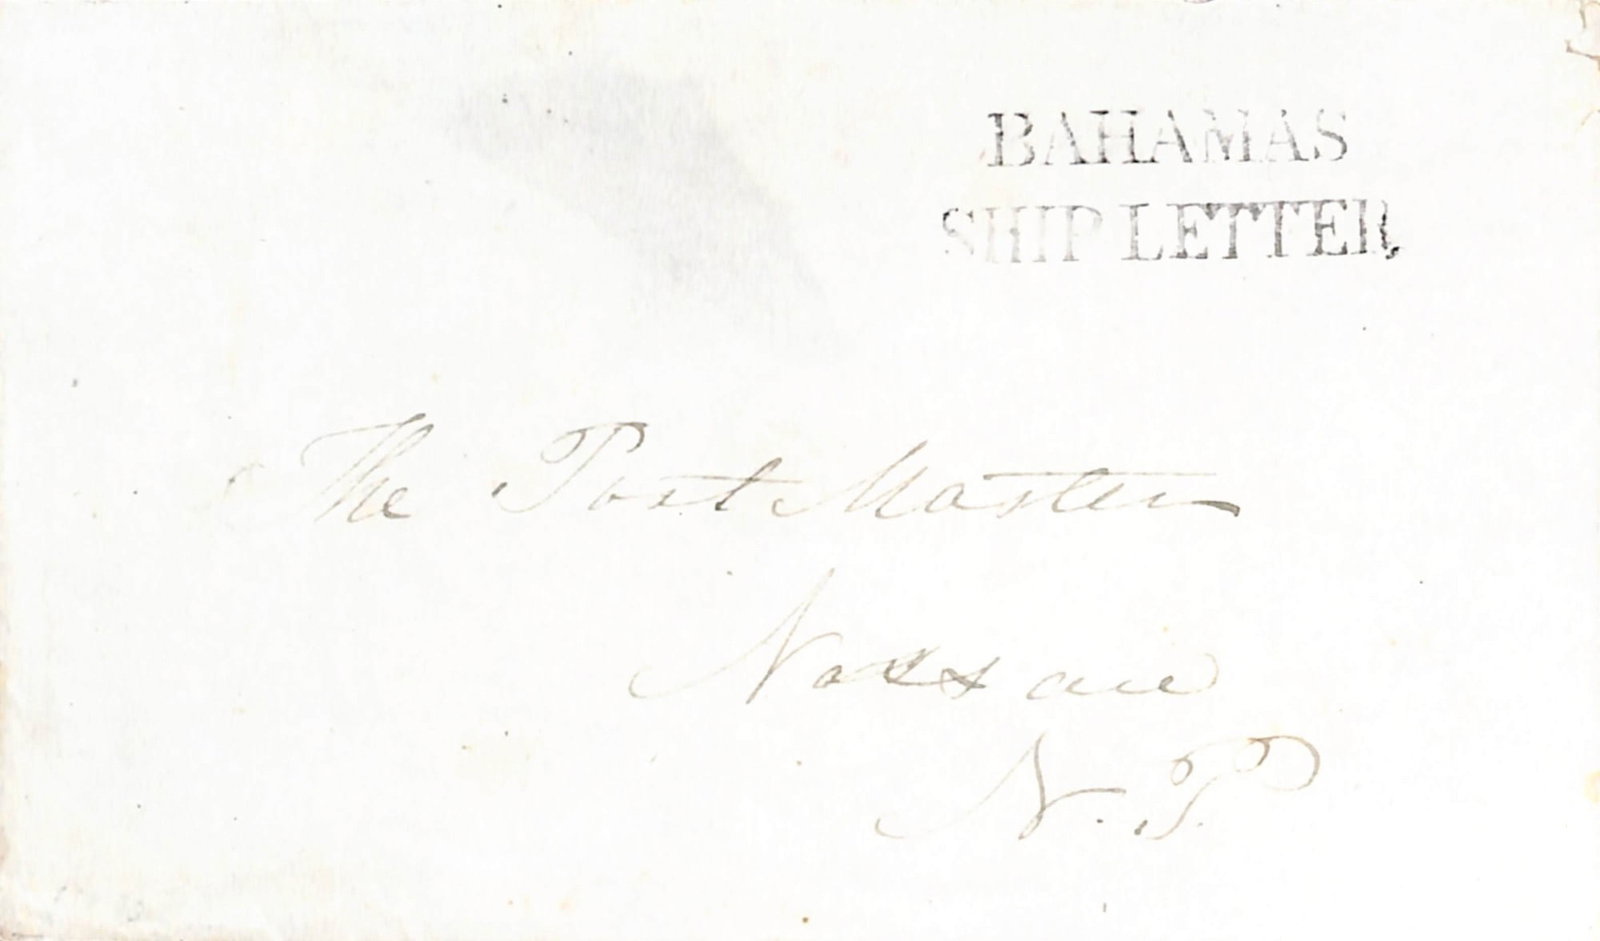 BAHAMAS
SHIP LETTER,
The Post Master
Nassau
N. P.